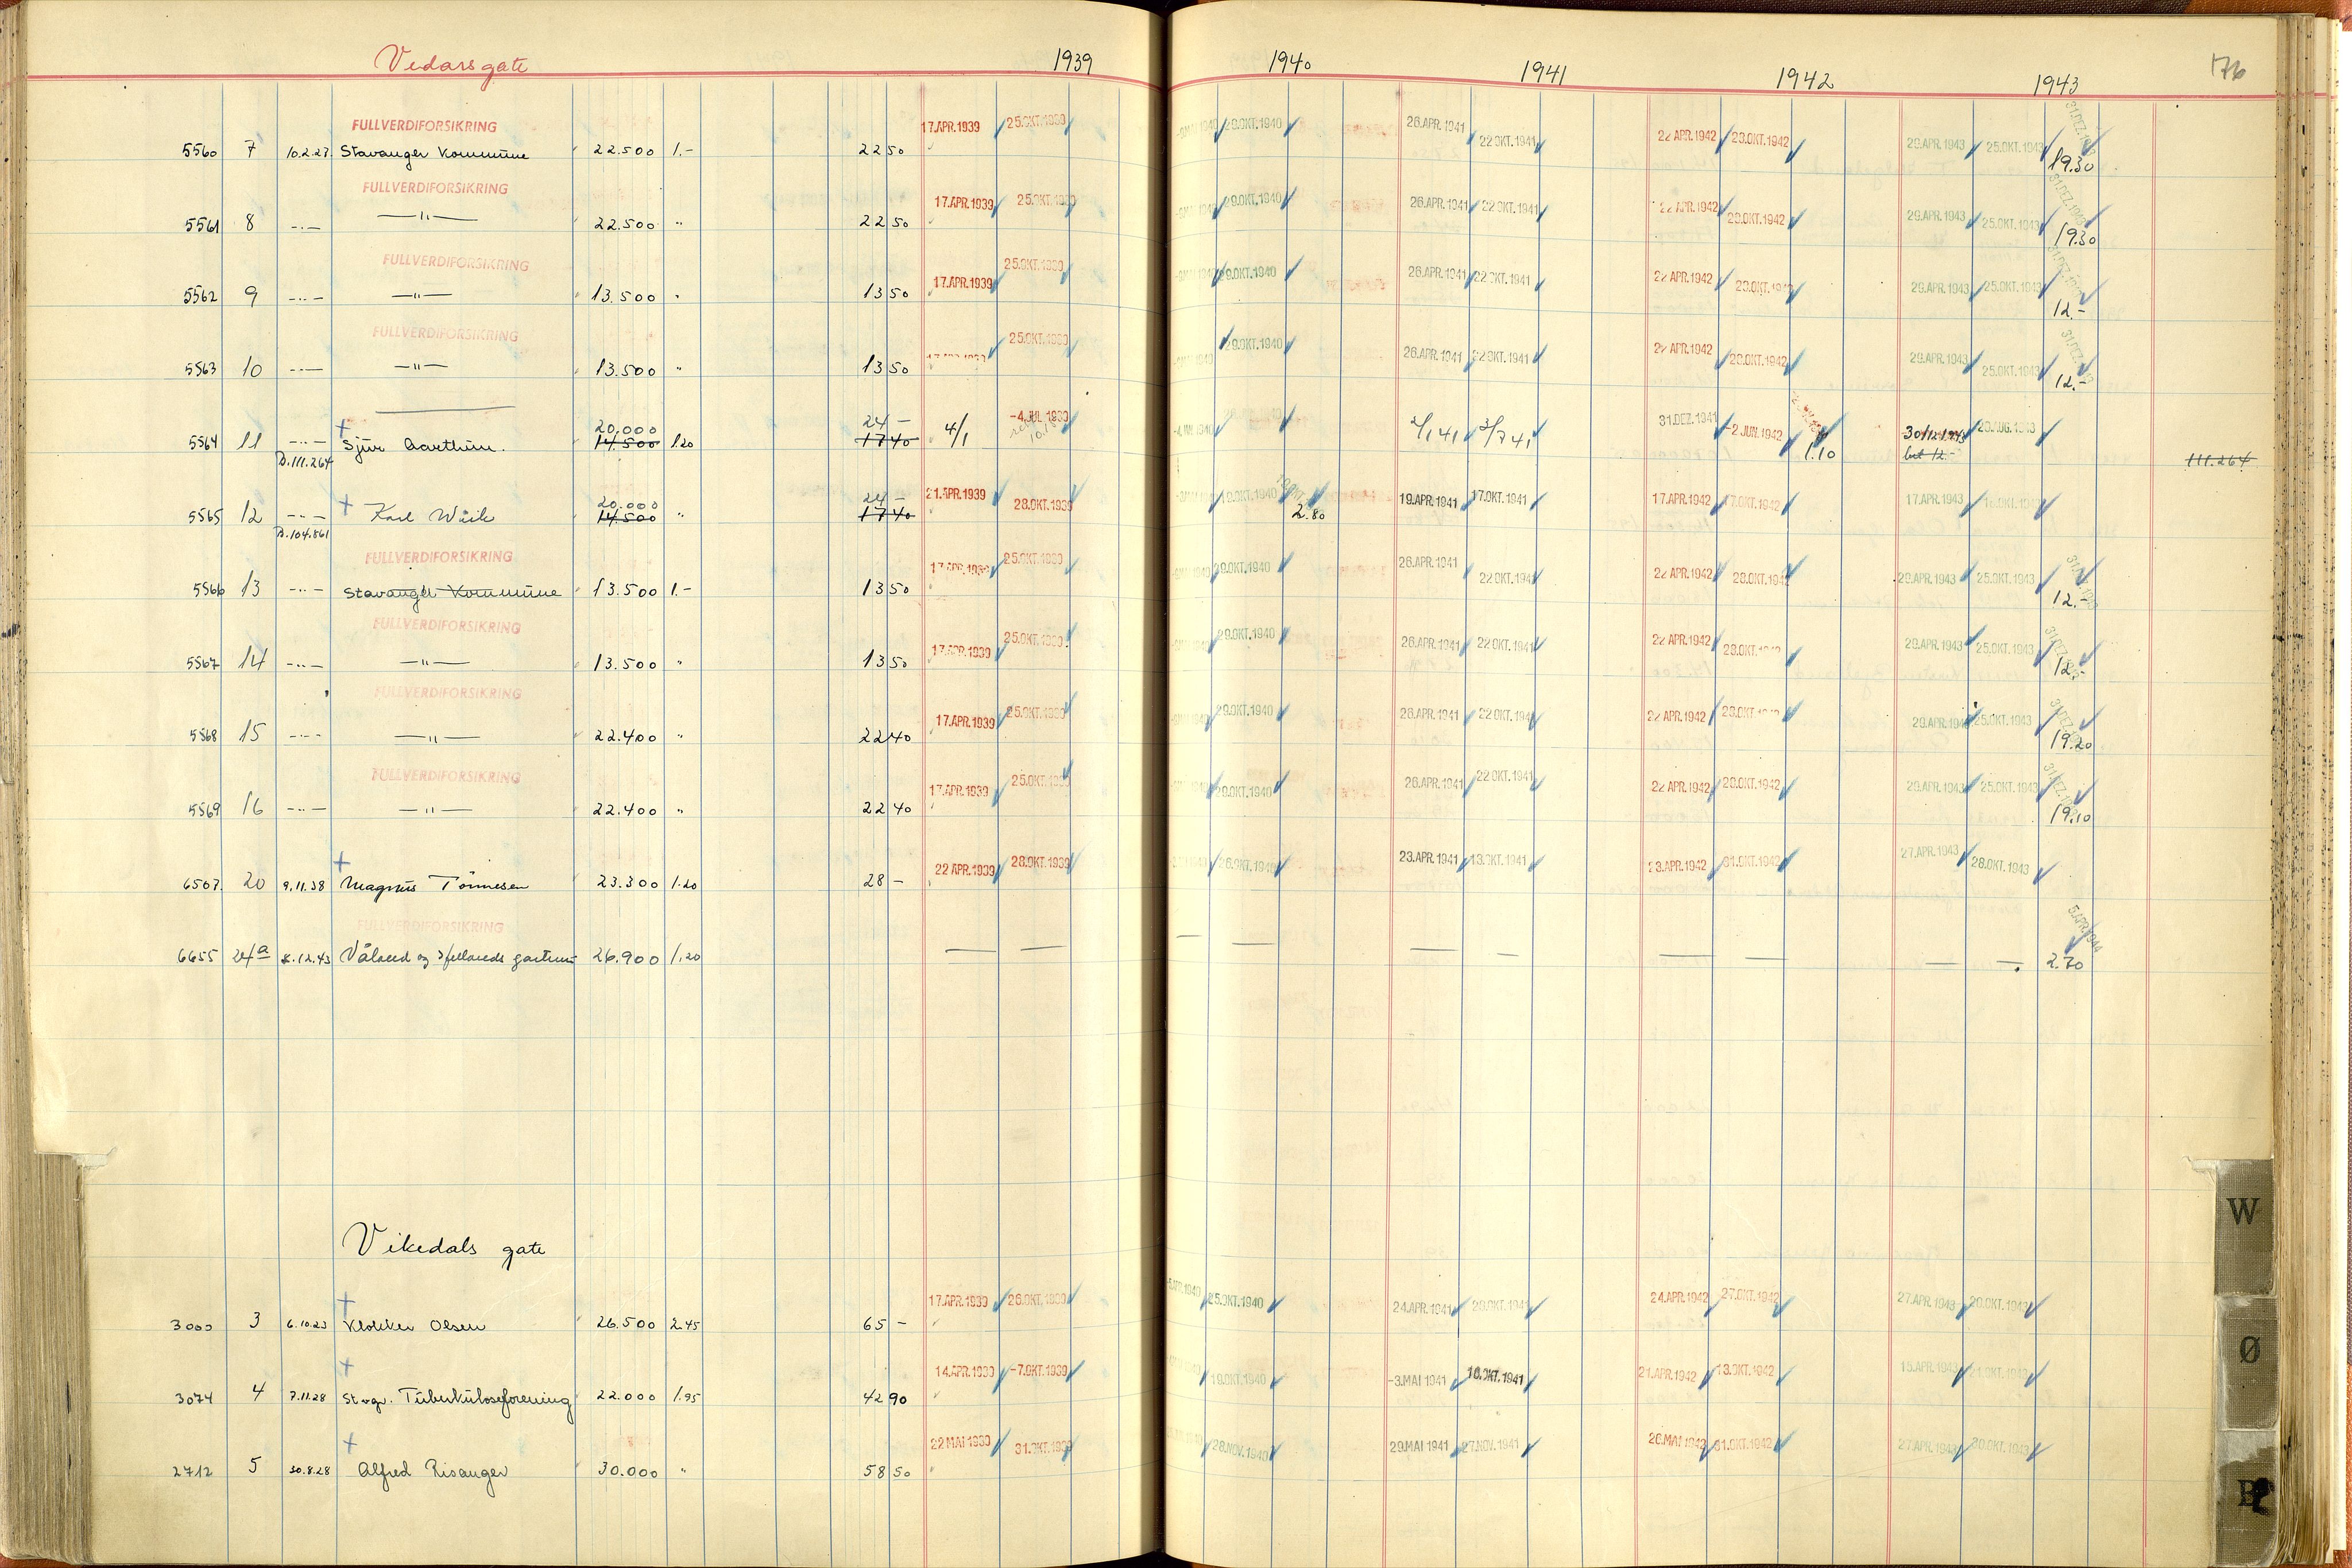 Vedarsgate 1939 1940 1941 1942 1943 176
FULLVERDIFORSIKRING 17.APR.1939 25.OKT.1939 29.OKT.1940 26.APR.1941 22 OKT.1941 22 APR.1942 28.OKT.1942 29.APR.1943 25.OKT.1943 31.DEZ.1943
5560 7 10.2.27. Stavanger Kommune 22.500 1.- 22 50 19.30
FULLVERDIFORSIKRING 17.APR.1939 25.OKT.1939 29.OKT.1940 26.APR.1941 22 OKT.1941 22 APR.1942 28.OKT.1942 29.APR.1943 25.OKT.1943 31.DEZ.1943
5561 8 -"- —"— 22.500 " 22 50 19.30
FULLVERDIFORSIKRING 17.APR.1939 25.OKT.1939 29.OKT.1940 26.APR.1941 22 OKT.1941 22 APR.1942 28.OKT.1942 29.APR.1943 25.OKT.1943
5562 9 -"- —"— 13.500 " 13 50 12.-
FULLVERDIFORSIKRING 25.OKT.1939 29.OKT.1940 26.APR.1941 22 OKT.1941 22 APR.1942 28.OKT.1942 29.APR.1943 25.OKT.1943 31.DEZ.1943
5563 10 -"- —"— 13.500 " 13 50 12.-
20.000 24 - -4.JUL.1939 31.DEZ.1941
5564 11 -"- Sjur Aarthun. 14.500 1.20 17 40 4/1 2/1 41 2/7 41 -2 JUN.1942 1.10 30/12 1943 26.AUG.1943
B.111.264 111.264
20.000 24 - 21.APR.1939 28.OKT.1939 19.OKT.1940 19.APR.1941 17.OKT.1941 17.APR.1942 17.OKT.1942 17.APR.1943
5565 12 -"- Karl Wiik 14.500 " 17 40 2.80
B.104.861
FULLVERDIFORSIKRING 17.APR.1939 25.OKT.1939 29.OKT.1940 26.APR.1941 22 OKT.1941 22 APR.1942 28.OKT.1942 29.APR.1943 25.OKT.1943
5566 13 -"- Stavanger Kommune 13.500 1.- 13 50 12.-
FULLVERDIFORSIKRING 17.APR.1939 25.OKT.1939 29.OKT.1940 26.APR.1941 22 OKT.1941 22 APR.1942 28.OKT. 29.APR.1943 25.OKT.1943
5567 14 -"- —"— 13.500 " 13 50 12.-
FULLVERDIFORSIKRING 17.APR.1939 25.OKT.1939 29.OKT.1940 26.APR.1941 22 OKT.1941 22 APR.1942 28.OKT. 29.APR.1943 25.OKT.1943
5568 15 -"- —"— 22.400 " 22 40 19.20
FULLVERDIFORSIKRING 17.APR.1939 25.OKT.1939 29.OKT.1940 26.APR.1941 22 OKT.1941 22 APR.1942 28.OKT.1942 29.APR.1943 25.OKT.1943
5569 16 -"- —"— 22.400 " 22 40 19.10
22 APR.1939 28.OKT.1939 26.OKT.1940 23.APR.1941 13.OKT.1941 23.APR.1942 31.OKT.1942 27.APR.1943 28.OKT.1943
6507 20 9.11.38 Magnus Tönnesen 23.300 1.20 28 -
FULLVERDIFORSIKRING 5.APR.1944
6655 24a 8.12.43 Våland og 26.900 1.20 2.70
W
Vikedals gate
17.APR.1939 26.OKT.1939 25.OKT.1940 24.APR.1941 24.APR.1942 27.OKT.1942 27.APR.1943
3000 3 6.10.23 Klokker Olsen 26.500 2.45 65 -
Ø
14.APR.1939 -7.OKT.1939 19.OKT.1940 -3.MAI 1941 16.OKT.1941 21.APR.1942 13.OKT.1942 15.APR.1943
3074 4 7.11.28 Stvgr. Tuberkuloseforening 22.000 1.95 42 90
22 MAI 1939 31.OKT.1939 28.NOV.1940 29.MAI 1941 27.NOV.1941 26.MAI 1942 31.OKT.1942 27.APR.1943 30.OKT.1943
2712 5 30.8.28 Alfred Risanger 30.000 " 58 50